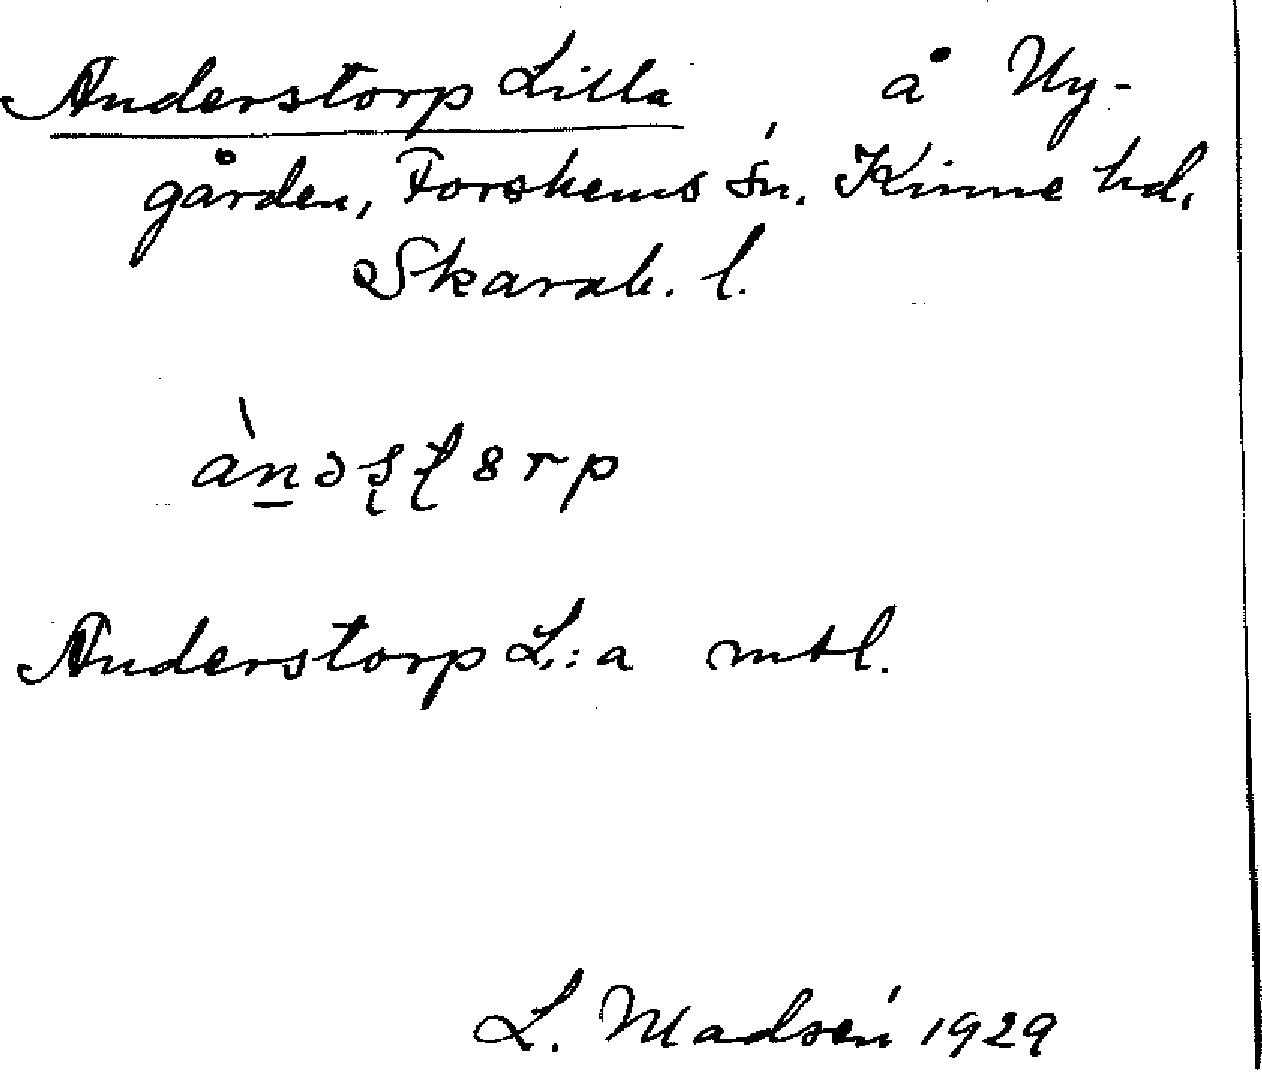 Anderstorp Lilla å Ny-
gården, Forshems sn. Kinne hd.
Skarab. l.
Anderstorp L:a mtl.
L. Madsén 1929